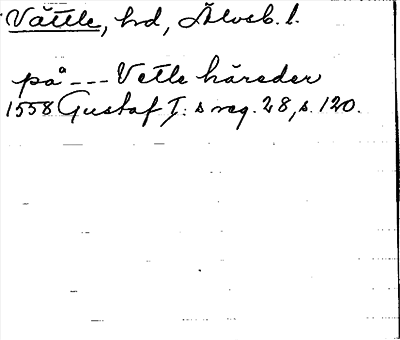 Vättle, hd, Älvsb. l.
på --- Vetle häreder
1558 Gustaf I: s reg. 28, s. 120.